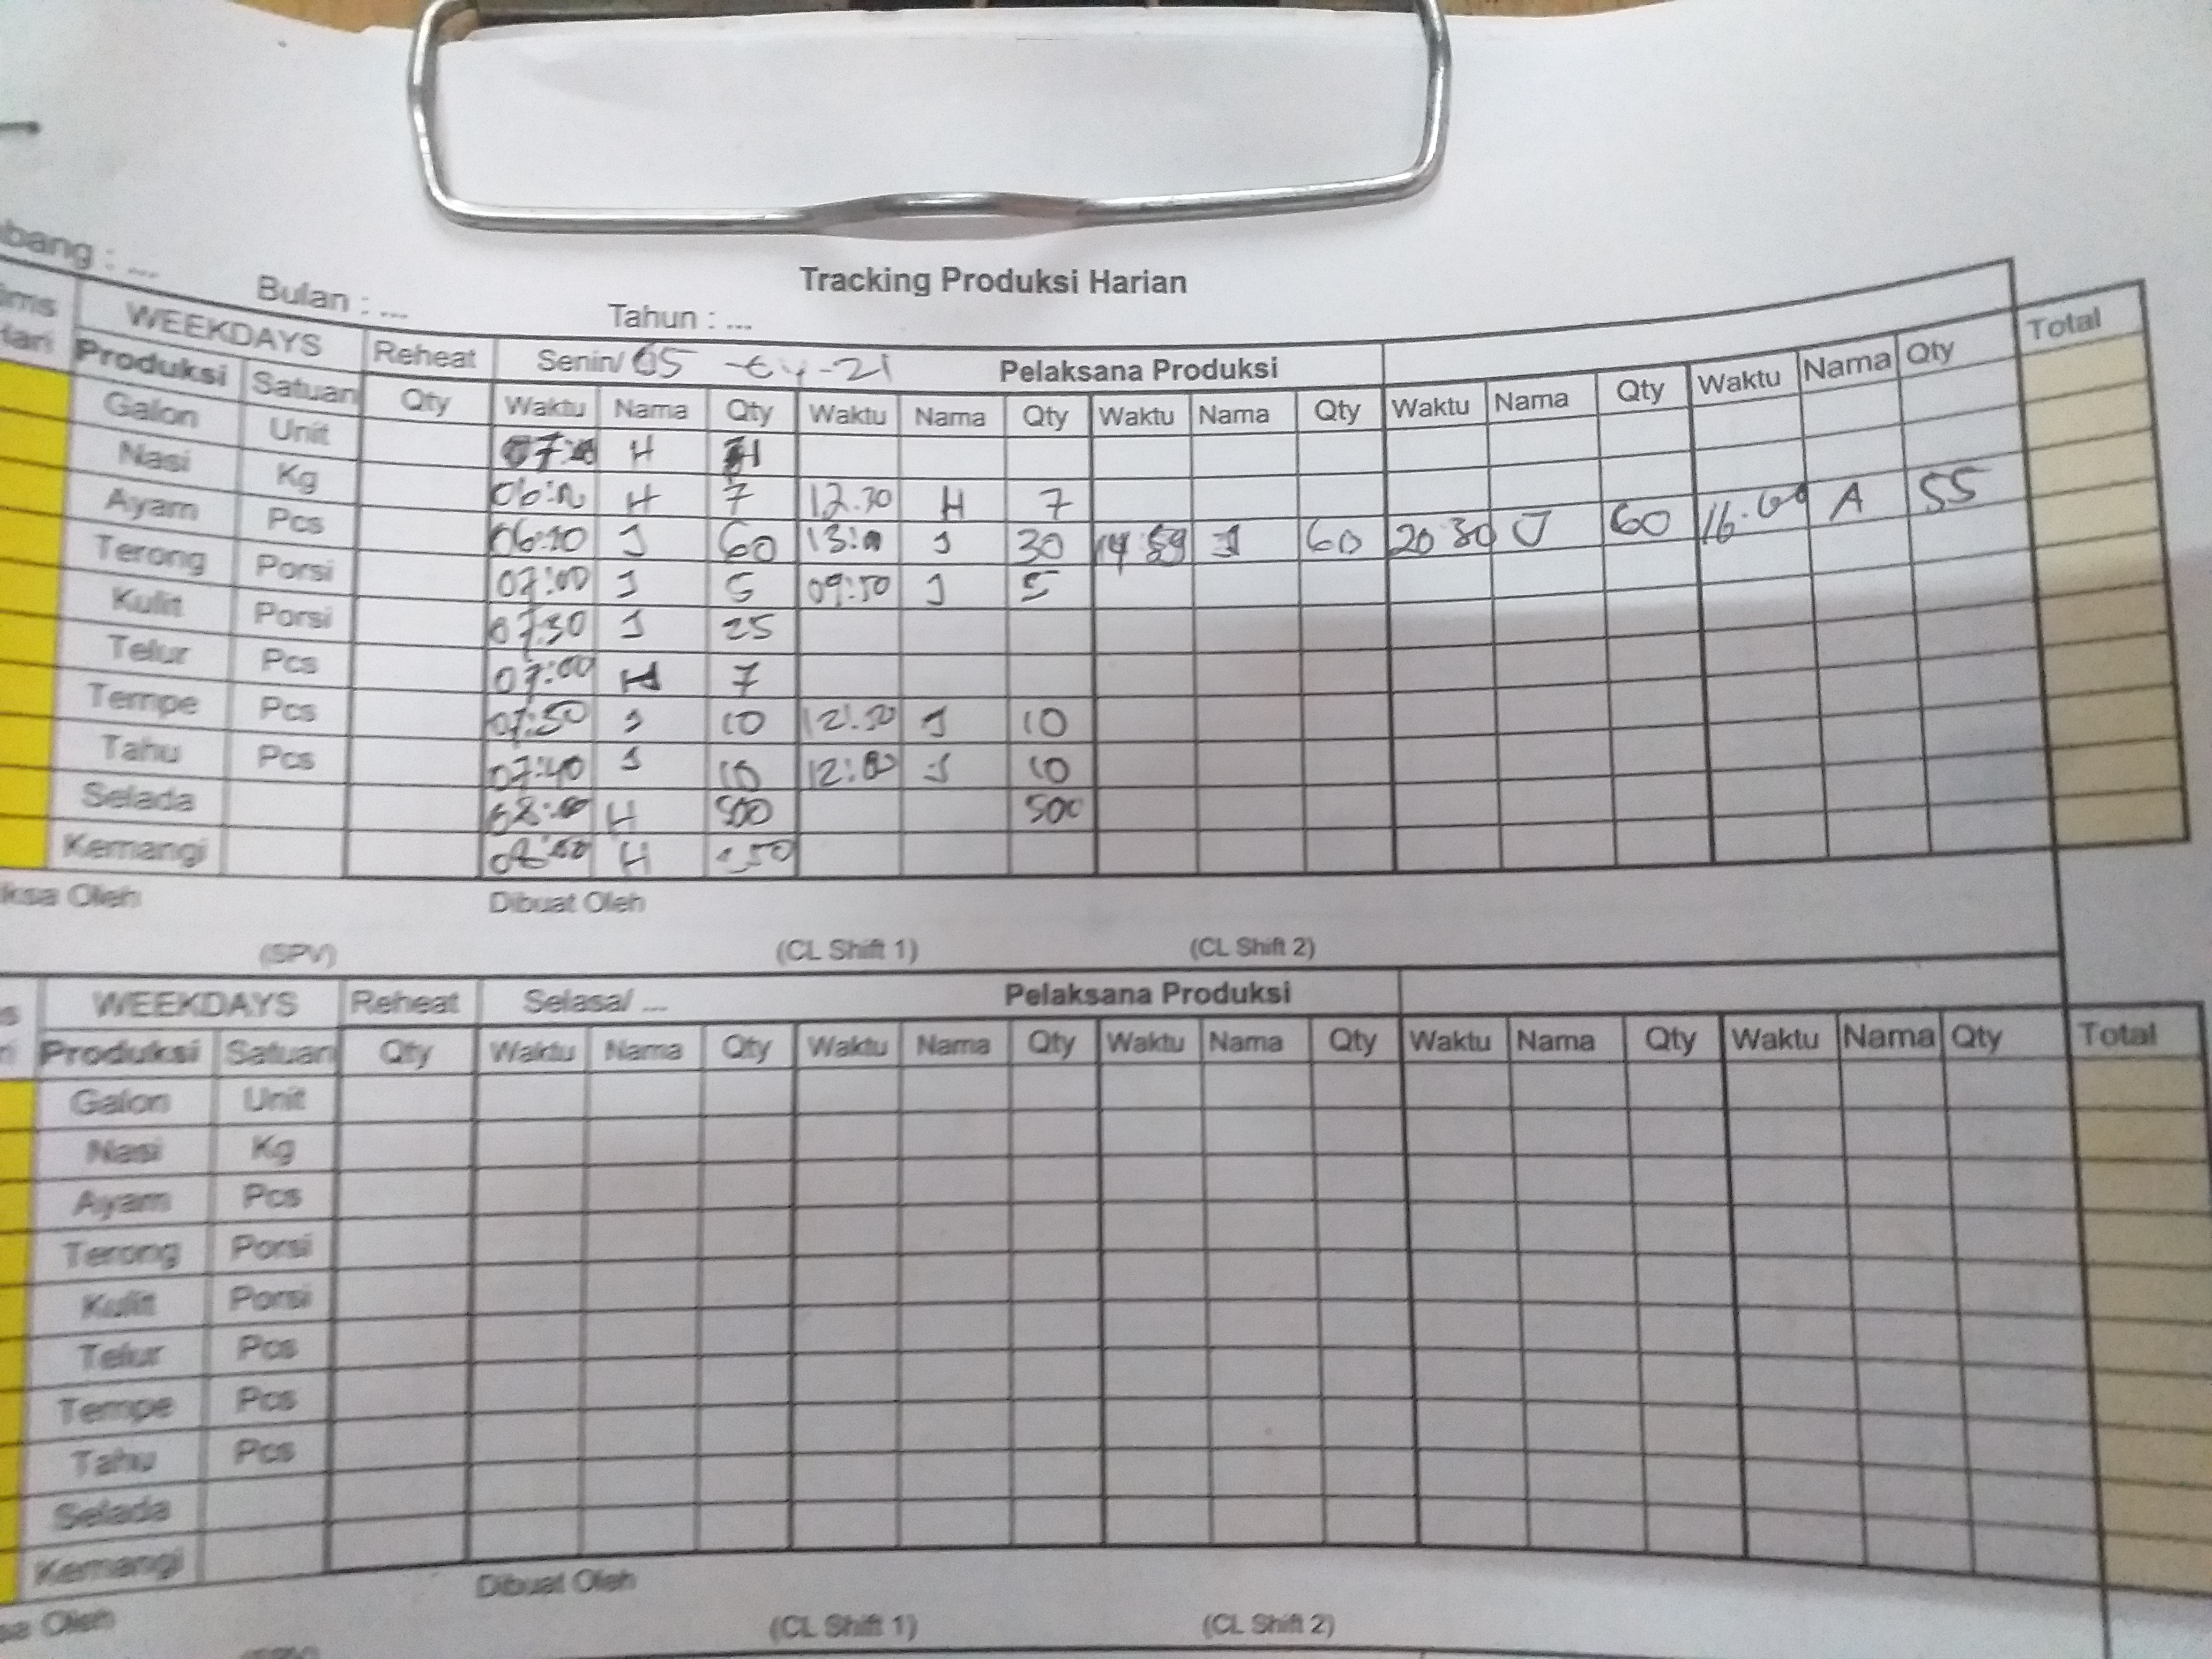 Tracking Produksi Harian
bang : ... Bulan : ... Tahun : ...
WEEKDAYS Reheat Senin/ 05 - 04 - 21 Pelaksana Produksi Total
Produksi Satuan Qty Waktu Nama Qty Waktu Nama Qty Waktu Nama Qty Waktu Nama Qty Waktu Nama Qty
Galon Unit H
Nasi Kg H 7 12.30 H 7
Ayam Pcs J 60 J 30 14 59 J 60 20 30 J 60 A 55
Terong Porsi 07:00 J 5 J 5
Kulit Porsi 07:30 J 25
Telur Pcs 07:00 H 7
Tempe Pcs 07:50 J 10 J 10
Tahu Pcs 07:40 J 10 12:00 J 10
Selada H 500 500
Kemangi H
ksa Oleh Dibuat Oleh
(SPV) (CL Shift 1) (CL Shift 2)
WEEKDAYS Reheat Selasa/ ... Pelaksana Produksi
Produksi Satuan Qty Waktu Nama Qty Waktu Nama Qty Waktu Nama Qty Waktu Nama Qty Waktu Nama Qty Total
Galon Unit
Nasi Kg
Ayam Pcs
Terong Porsi
Kulit Porsi
Telur Pcs
Tempe Pcs
Tahu Pcs
Selada
Kemangi
sa Oleh Dibuat Oleh
(CL Shift 1) (CL Shift 2)